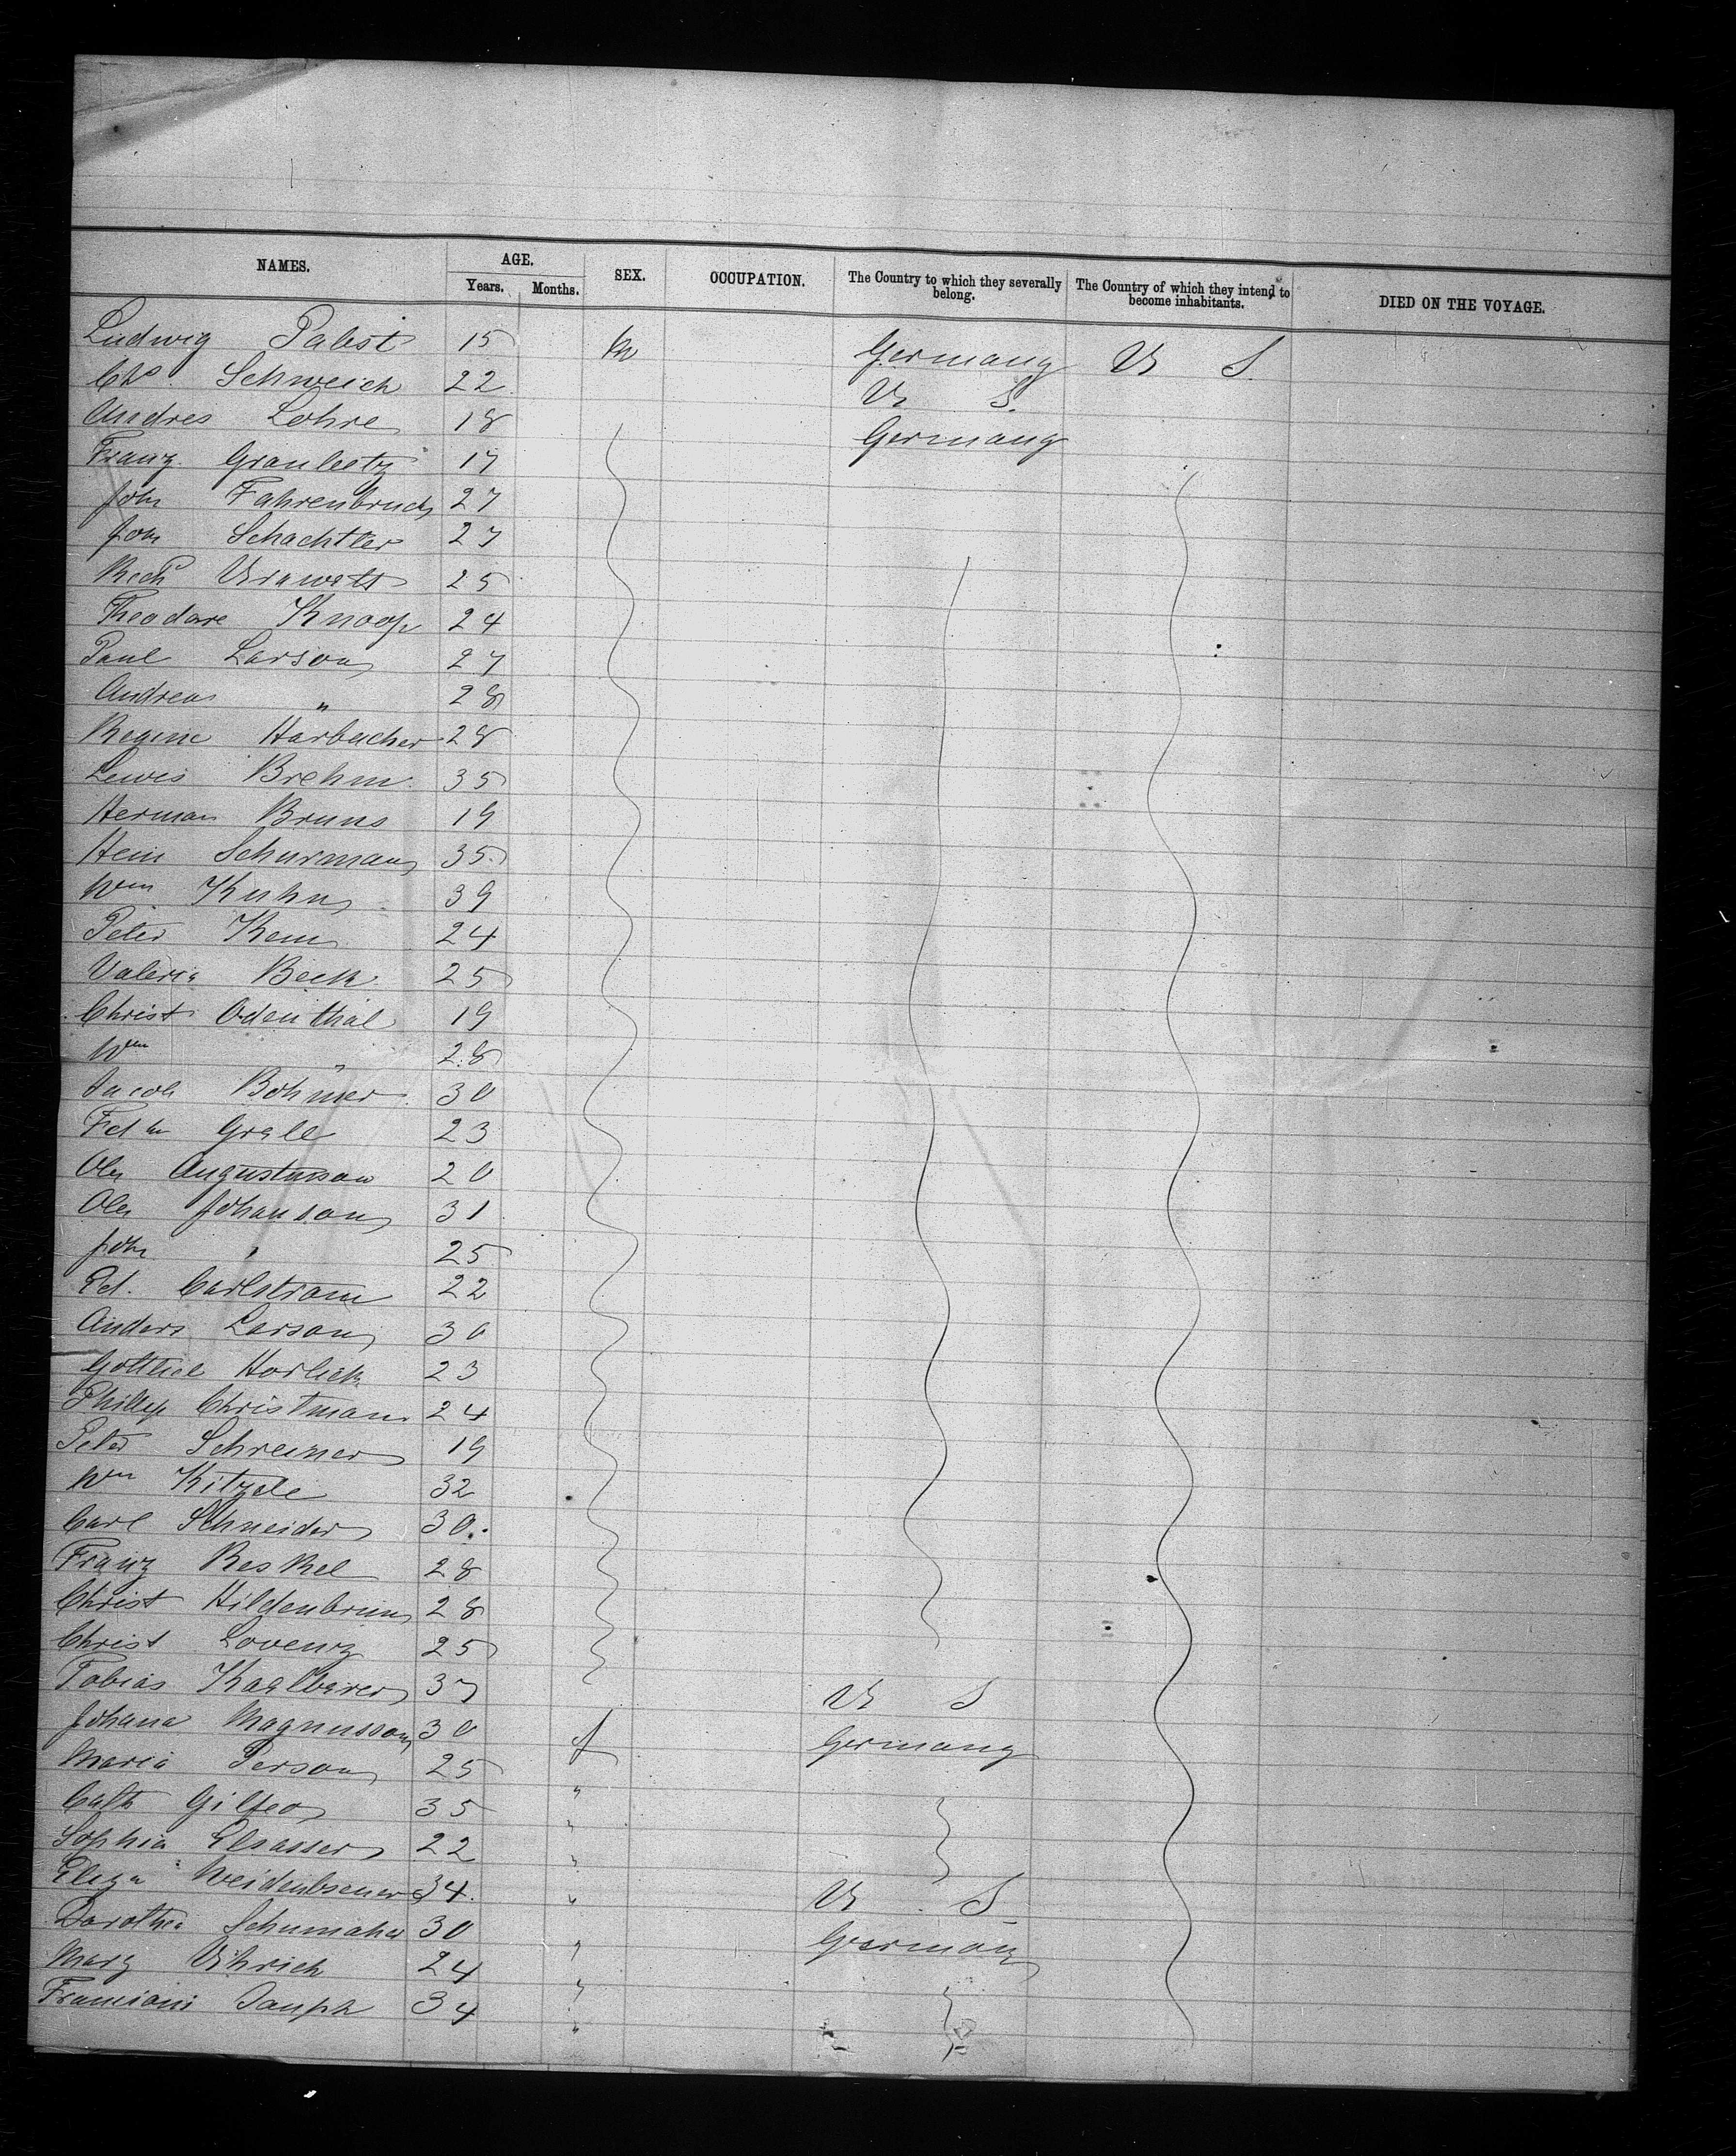 NAMES. AGE. SEX. OCCUPATION. The Country to which they severally belong. The Country of which they intend to become inhabitants. DIED ON THE VOYAGE.
Years. Months.
Ludwig Pabst 15 m Germany U S
Chs. Schweich 22 U S.
Andres Lohre 18 Germany
Franz 17
Joh Fahrenbruch 27
Joh Schachtler 27
Rich 25
Theodore Knoop 24
Paul Larson 27
Andreas " 28
Regine Harbacher 28
Lewis Brehm 35
Herman Bruns 19
Hein Schurman 35
Wm Kuhn 39
Peter Kem 24
Valeria Beck 25
Christ Odenthal 19
Wm " 28
Jacob Böhmer 30
Grall 23
Ole Augustusson 20
Ole Johanson 31
Joh " 25
Ed. Carlstrom 22
Anders Larson 30
Gottlieb Horlick 23
Phillip Christman 24
Peter Schreiner 19
Wm Kitzele 32
Carl Schneider 30
Franz Reskel 28
Christ Hildenbrun 28
Christ Lorenz 25
Tobias 37 U S
Johana Magnusson 30 f Germany
Maria Person 25 "
Cath 35 "
Sophia Elsasser 22 "
Eliza 34 " U S
Dorothea Schumaher 30 " Germany
Marg Uhrich 24 "
34 "